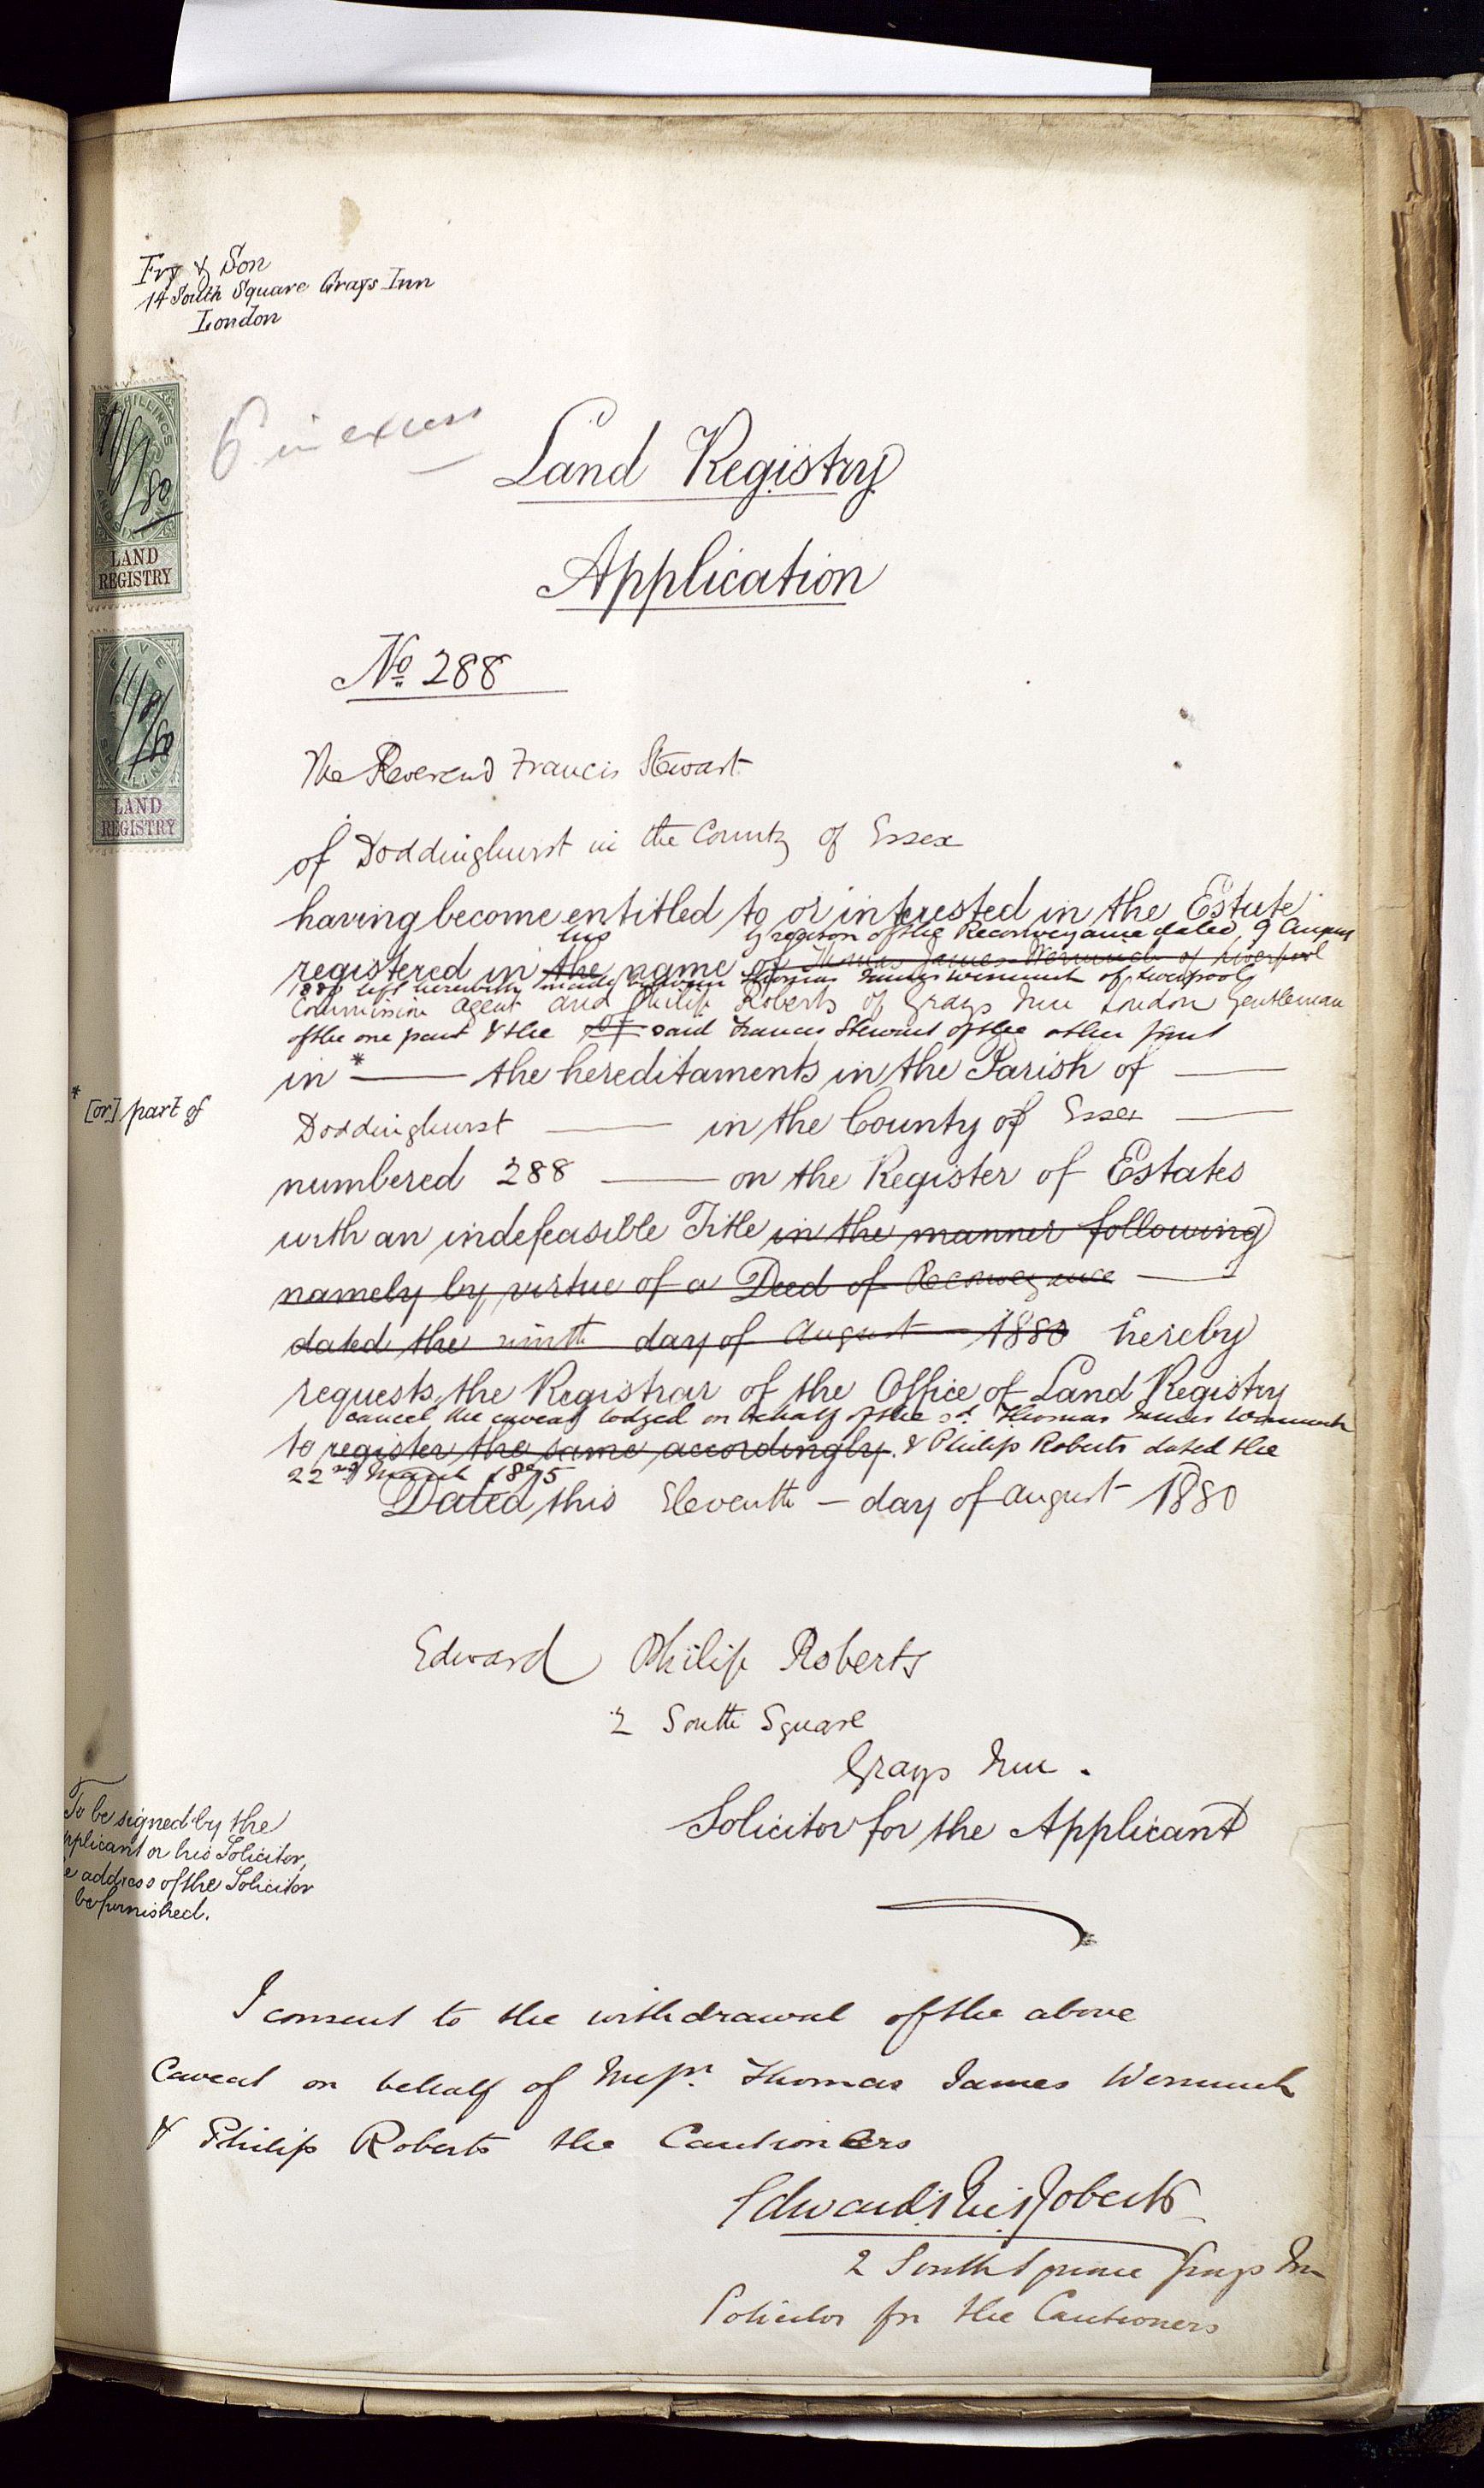 Fry & Son
14 South Square Grays Inn
London
6 in excess
SHILLINGS
AND SIX
11/8/80
LAND
REGISTRY
FIVE
SHILLINGS
11/8/80
LAND
REGISTRY
Land Registry
Application
No 288
The Reverend Francis Stewart
of Doddinghurst in the County of Essex
having become entitled to or interested in the Estate
his by reason of the Reconveyance dated 9 August
registered in the name of Thomas James Wermuch of Liverpool
1880 left herewith made between Thomas James Wermuch of Liverpool
Commission Agent and Philip Roberts of Grays Inn London Gentleman
of the one part & the of said Francis Stewart of the other part
in * the hereditaments in the Parish of
* [or] part of
Doddinghurst in the County of Essex
numbered 288 on the Register of Estates
with an indefeasible Title in the manner following
namely by virtue of a Deed of Reconveyance
dated the ninth day of August 1880 hereby
requests the Registrar of the Office of Land Registry
cancel the caveat lodged on behalf of the sd. Thomas James Wermuch
to register the same accordingly. & Philip Roberts dated the
22nd March 1875
Dated this Eleventh - day of August 1880
Edward Philip Roberts
2 South Square
Grays Inn.
Solicitor for the Applicant
To be signed by the
pplicant or his Solicitor,
e address of the Solicitor
be furnished.
I consent to the withdrawal of the above
Caveat on behalf of Messrs. Thomas James Wermuch
& Philip Roberts the Cautioners
Edward Philip Roberts
2 South Square Grays Inn
Solicitor for the Cautioners